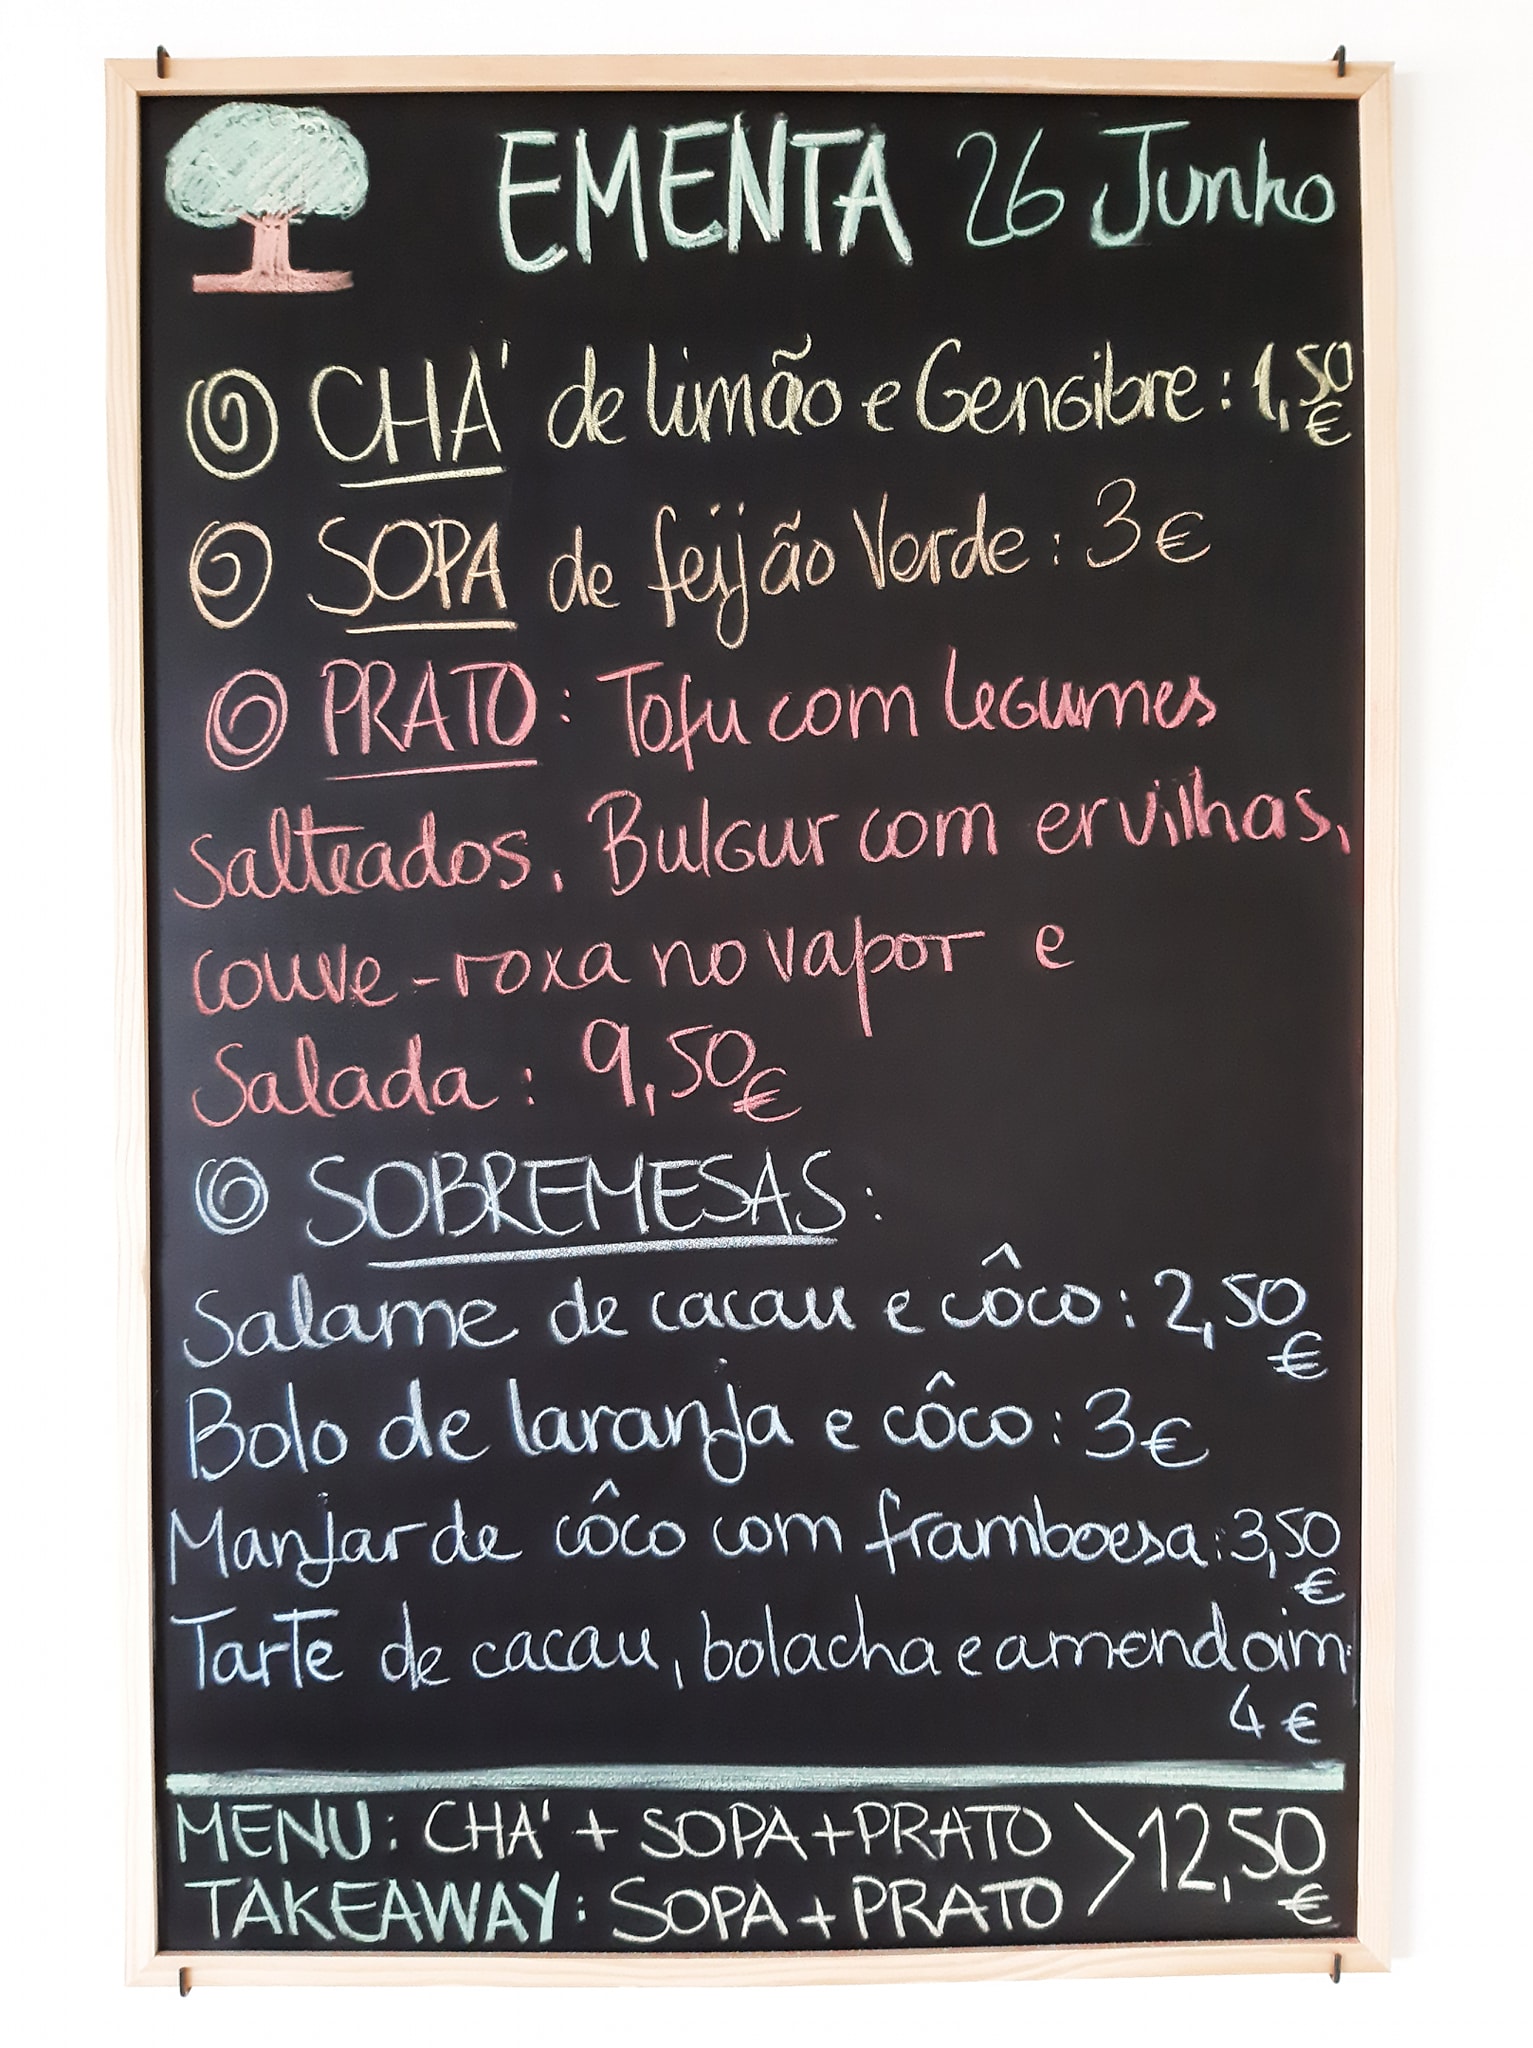 EMENTA 26 Junho
CHÁ de limão e Gengibre: 1,50 €
SOPA de feijão Verde: 3€
PRATO: Tofu com legumes
salteados, Bulgur com ervilhas,
couve-roxa no vapor e
Salada: 9,50€
SOBREMESAS:
Salame de cacau e côco: 2,50 €
Bolo de laranja e côco: 3€
Manjar de côco com framboesa: 3,50 €
Tarte de cacau, bolacha e amendoim:
4 €
MENU: CHÁ + SOPA+PRATO
TAKEAWAY: SOPA+PRATO > 12,50 €